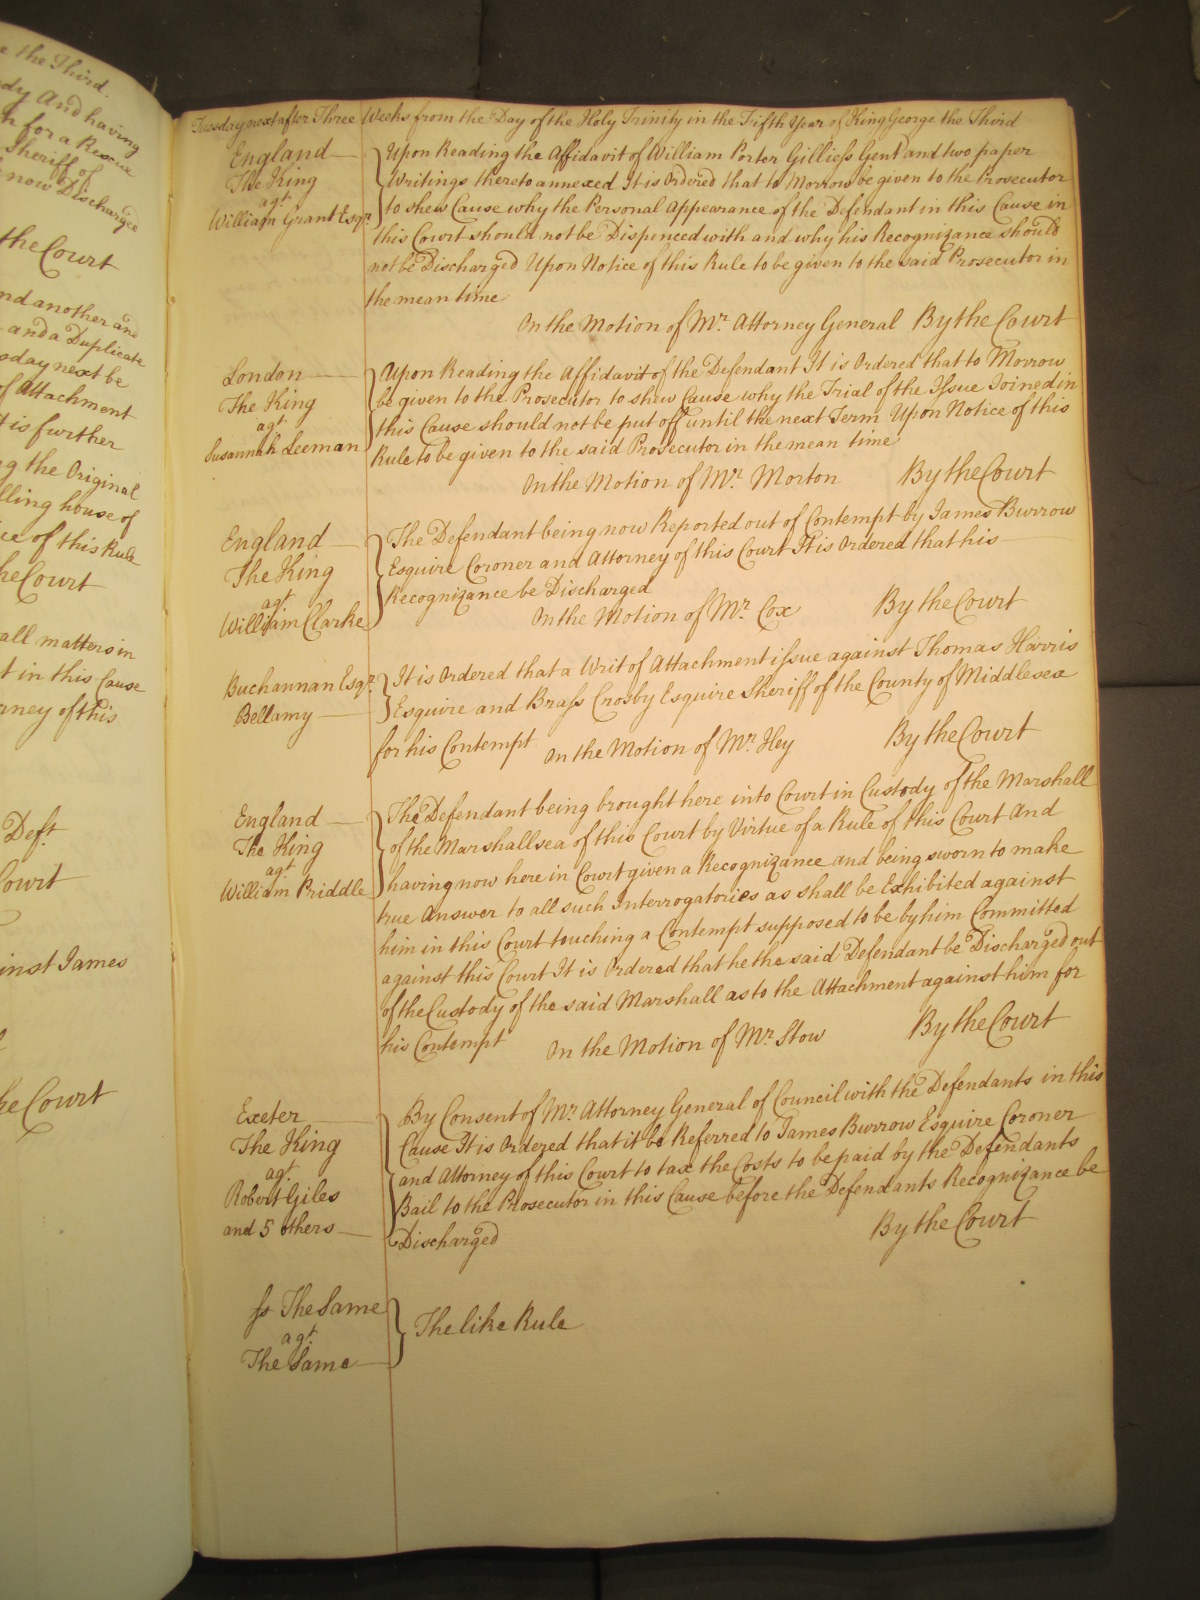 e the Third.
dy And having
n for a Rescue
Sheriff of
now Discharged
the Court
nd another and
and a Duplicate
sday next be
of Attachment
t is further
g the Original
lling house of
ice of this Rule
he Court
all matters in
t in this Cause
rney of this
Deft.
Court
inst James
he Court
Tuesday next after Three Weeks from the Day of the Holy Trinity in the Fifth Year of King George the Third
England
The King
agt.
William Grant Esqr.
Upon Reading the Affidavit of William Porter Gilliess Gent and two paper
Writings thereto annexed It is Ordered that to Morrow be given to the Prosecutor
to shew Cause why the Personal Appearance of the Defendant in this Cause in
this Court should not be Dispenced with and why his Recognizance should
not be Discharged Upon Notice of this Rule to be given to the said Prosecutor in
the mean time
On the Motion of Mr. Attorney General By the Court
London
The King
agt.
Susannah Leeman
Upon Reading the Affidavit of the Defendant It is Ordered that to Morrow
be given to the Prosecutor to shew Cause why the Trial of the Issue Joined in
this Cause should not be put off until the next Term Upon Notice of this
Rule to be given to the said Prosecutor in the mean time
On the Motion of Mr. Morton By the Court
England
The King
agt.
William Clarke
The Defendant being now Reported out of Contempt by James Burrow
Esquire Coroner and Attorney of this Court It is Ordered that his
Recognizance be Discharged
On the Motion of Mr. Cox By the Court
Buchannan Esqr.
Bellamy
It is Ordered that a Writ of Attachment issue against Thomas Harris
Esquire and Brass Crosby Esquire Sheriff of the County of Middlesex
for his Contempt On the Motion of Mr. Hey By the Court
England
The King
agt.
William Priddle
The Defendant being brought here into Court in Custody of the Marshall
of the Marshallsea of this Court by Virtue of a Rule of this Court And
having now here in Court given a Recognizance and being sworn to make
true Answer to all such Interrogatories as shall be Exhibited against
him in this Court touching a Contempt supposed to be by him Committed
against this Court It is Ordered that he the said Defendant be Discharged out
of the Custody of the said Marshall as to the Attachment against him for
his Contempt On the Motion of Mr. Stow By the Court
Exeter
The King
agt.
Robert Giles
and 5 others
By Consent of Mr. Attorney General of Council with the Defendants in this
Cause It is Ordered that it be Referred to James Burrow Esquire Coroner
and Attorney of this Court to tax the Costs to be paid by the Defendants
Bail to the Prosecutor in this Cause before the Defendants Recognizance be
Discharged By the Court
ss The Same
agt.
The Same
The like Rule